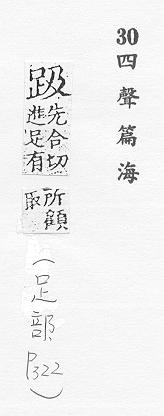 30 四聲篇海
趿
先合切
進足有
所顧
取
(足部 P322)